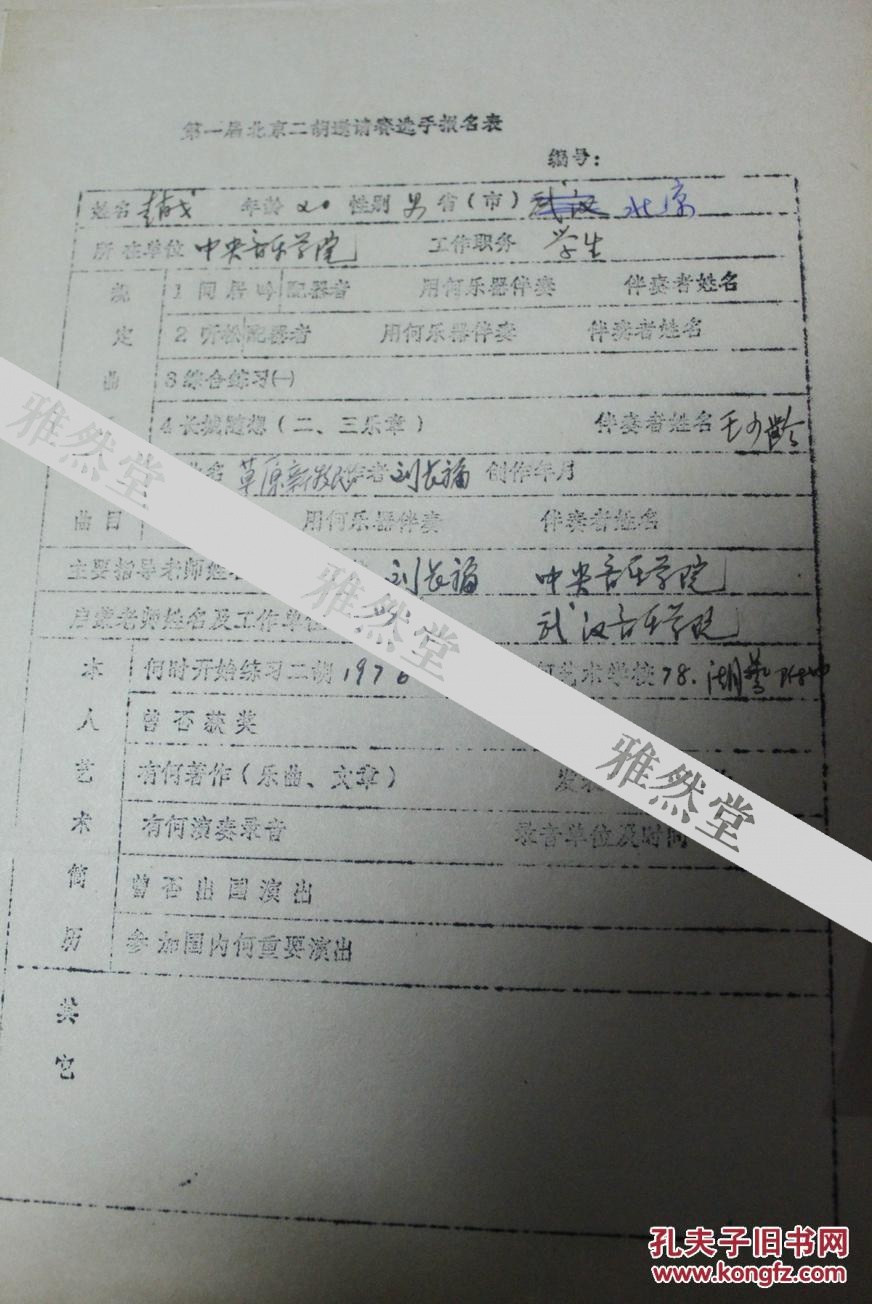 第一届北京二胡邀请赛选手报名表
编号：
姓名 年龄 20 性别 男 省（市） 武汉 北京
所在单位 中央音乐学院 工作职务 学生
规定曲
1 闲居吟 配器者 用何乐器伴奏 伴奏者姓名
2 听松 配器者 用何乐器伴奏 伴奏者姓名
3 综合练习㈠
4 长城随想（二、三乐章） 伴奏者姓名
名 草原新牧民 者 刘长福 创作年月
曲目 用何乐器伴奏 伴奏者姓名
主要指导老师姓名 刘长福 中央音乐学院
启蒙老师姓名及工作单位 武汉音乐学院
本人艺术简历
何时开始练习二胡 1976 艺术学校 78. 湖艺附中
曾否获奖
有何著作（乐曲、文章） 发表
有何演奏录音 录音单位及时间
曾否出国演出
参加国内何重要演出
其它
雅然堂
雅然堂
雅然堂
孔夫子旧书网
www.kongfz.com